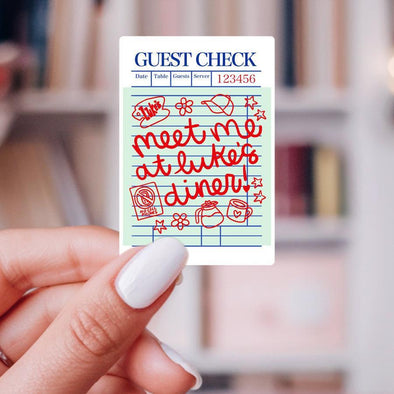 GUEST CHECK
Date Table Guests Server 123456
Luke's
meet me
at luke's
diner!